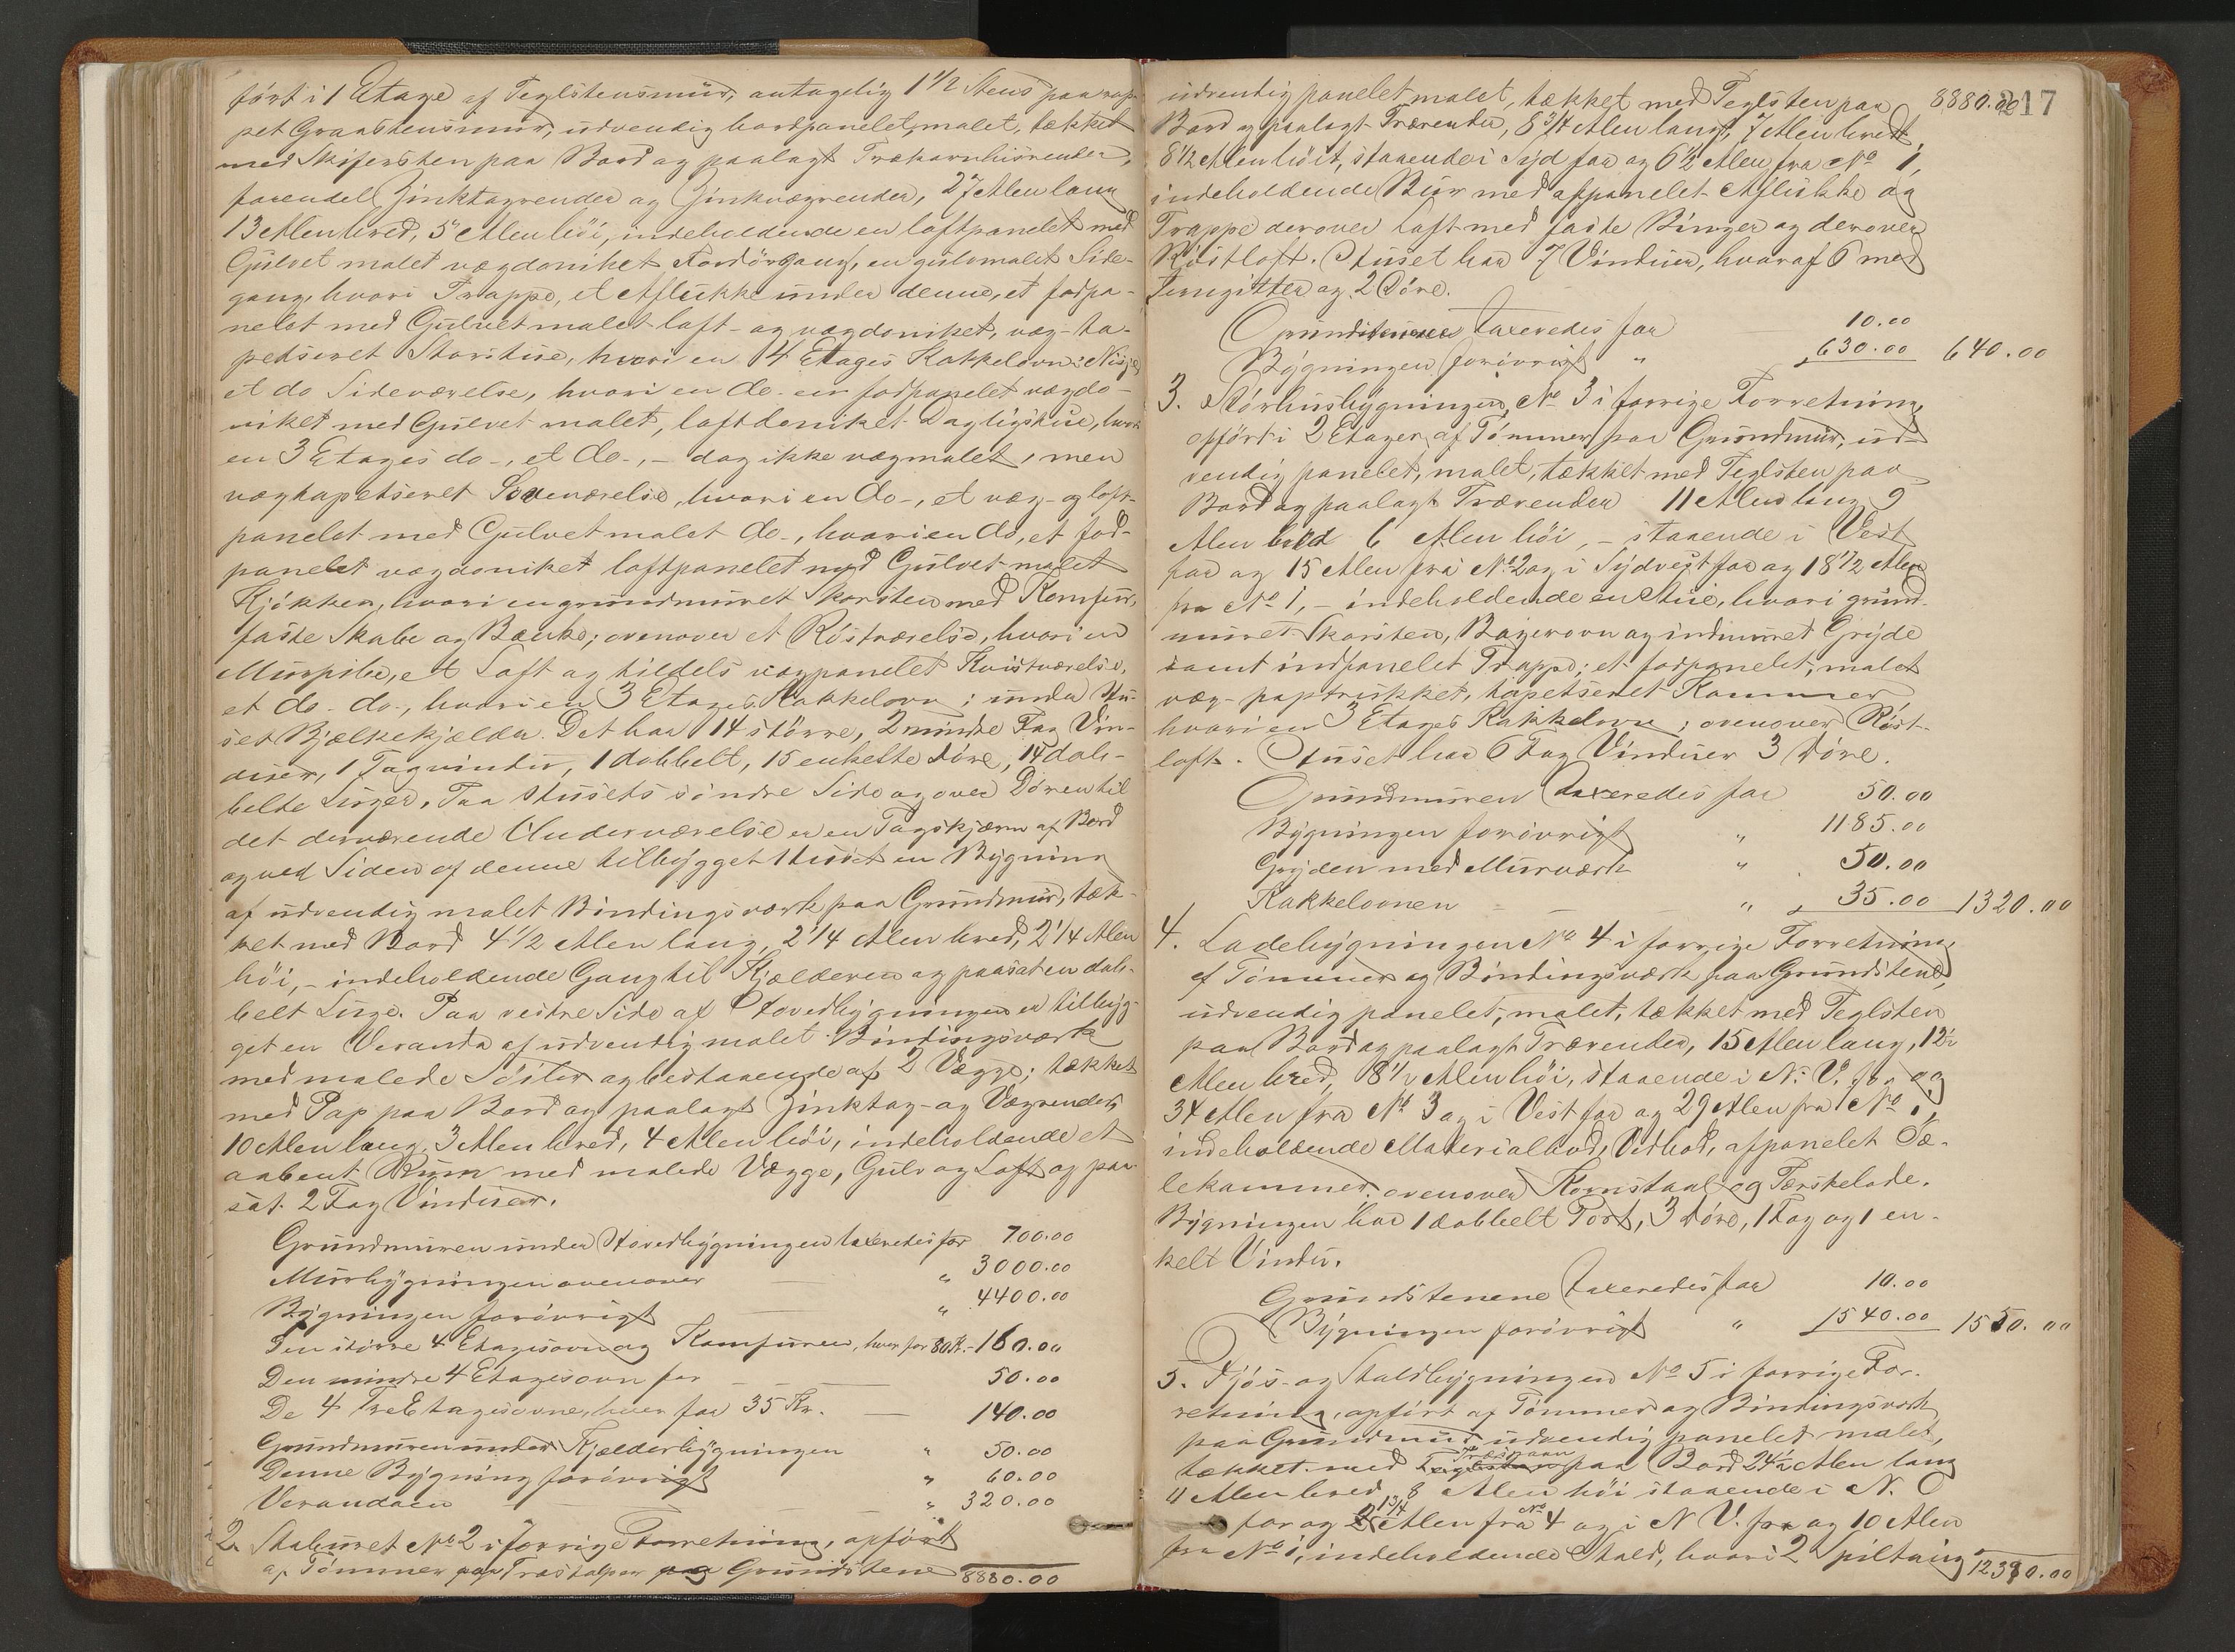 ført i 1 Etage af Teglstensmur, antagelig 1 1/2 Stens paa rap-
pet Graastensmur, udvendig bordpanelet, malet, tækket
med Skifersten paa Bord og paalagt Trækornhisrender,
forendel Zinktagrender og Zinkvægrender, 27 Alen lang
13 Alen bred, 5 Alen höi, indeholdende en loftpanelet med
Gulvet malet vægdoniket Fordörgang, en gulvmalet Side-
gang, hvori Trappe, et Aflukke under denne, et fodpa-
nelet med Gulvet malet loft- og vægdoniket, væg-ta-
petseret Storstue, hvori en 4 Etages Kakkelovn i Nisje,
et do Sideværelse, hvori en do- en fodpanelet vægdo-
niket med Gulvet malet, loftdoniket Dagligstue, hvori
en 3 Etages do-, et do-, - dog ikke vægmalet, men
vægtapetseret Soveværelse, hvori en do-, et væg- og loft-
panelet med Gulvet malet do-, hvori en do, et fod-
panelet vægdoniket loftpanelet med Gulvet malet
Kjökken, hvori en grundmuret Skorsten med Komfur,
faste Skabe og Bænke; ovenover et Röstværelse, hvori en
Murpibe, et Loft og tildels vægpanelet Kvistværelse,
et do- do-, hvori en 3 Etages Kakkelovn; under Hu-
set Bjælkekjælder. Det har 14 större, 2 mindre Fag Vin-
duer, 1 Tagvindu, 1 dobbelt, 15 enkelte Döre, 14 dob-
belte Luger. Paa Husets söndre Side og over Dören til
det derværende Underværelse er en Tagskjærm af Bord
og ved Siden af denne tilbygget Huset en Bygning
af udvendig malet Bindingsværk paa Grundmur, tæk-
ket med Bord 4 1/2 Alen lang, 2 1/4 Alen bred, 2 1/4 Alen
höi, - indeholdende Gang til Kjælderen og paasat en dob-
belt Luge. Paa vestre Side af Hovedbygningen er tilbyg-
get en Veranda af udvendig malet Bindingsværk
med malede Söiler og bestaaende af 2 Vægge; tækket
med Pap paa Bord og paalagt Zinktag- og Vægrender,
10 Alen lang, 3 Alen bred, 4 Alen höi, indeholdende et
aabent Rum med malede Vægge, Gulv og Loft og paa-
sat 2 Fag Vinduer.
Grundmuren under Hovedbygningen taxeredes for 700.00
Murbygningen ovenover — " 3000.00
Bygningen forövrigt — " 4400.00
Den större 4 Etagesovn og Komfuren, hver for 80 Kr. - 160.00
Den mindre 4 Etagesovn for — 50.00
De 4 TreEtagesovne, hver for 35 Kr. — 140.00
Grundmuren under Kjælderbygningen " 50.00
Denne Bygning forövrigt " 60.00
Verandaen " 320.00
2. Staburet No 2 i forrige Forretning, opfört
af Tömmer paa Træstolper paa Grundstene 8880.00
217
udvendig panelet malet, tækket med Teglsten paa 8880.00
Bord og paalagt Trærender, 8 3/4 Alen langt, 7 Alen bredt,
8 1/2 Alen höit, staaende i Syd for og 6 1/2 Alen fra No 1,
indeholdende Bur med afpanelet Aflukke og
Trappe derover Loft med faste Binger og derover
Röstloft. Huset har 7 Vinduer, hvoraf 6 med
Jerngitter og 2 Döre.
Grundstenene taxeredes for 10.00
Bygningen forövrigt " 630.00 640.00
3. Störhusbygningen, No 3 i forrige Forretning,
opfört i 2 Etager af Tömmer paa Grundmur, ud-
vendig panelet, malet, tækket med Teglsten paa
Bord og paalagt Trærender 11 Alen lang 9
Alen bred 6 Alen höi, - staaende i Vest
for og 15 Alen fra No 2 og i Sydvest for og 18 1/2 Alen
fra No 1, - indeholdende en Stue, hvori grund-
muret Skorsten, Bagerovn og indmuret Gryde
samt indpanelet Trappe; et fodpanelet, malet
væg- paptrukket, tapetseret Kammer
hvori en 3 Etages Kakkelovn; ovenover Röst-
loft. Huset har 6 Fag Vinduer 3 Döre.
Grundmuren taxeredes for 50.00
Bygningen forövrigt " 1185.00
Gryden med Murværk " 50.00
Kakkelovnen " 35.00 1320.00
4. Ladebygningen No 4 i forrige Forretning
af Tömmer og Bindingsværk paa Grundstene,
udvendig panelet, malet, tækket med Teglsten
paa Bord og paalagt Trærender, 15 Alen lang, 12 1/2
Alen bred, 8 1/2 Alen höi, staaende i N. V. for og
34 Alen fra No 3 og i Vest for og 29 Alen fra No 1,
indeholdende Materialbod, Vedbod, afpanelet Sæ-
lekammer, ovenover Kornstaal og Tærskelade.
Bygningen har 1 dobbelt Port, 3 Döre, 1 Fag og 1 en-
kelt Vindu.
Grundstenene taxeredes for 10.00
Bygningen forövrigt " 1540.00 1550.00
5. Fjös- og Staldbygningen No 5 i forrige For-
retning, opfört af Tömmer og Bindingsværk
paa Grundmur udvendig panelet malet,
tækket med Træspaan paa Bord 24 1/2 Alen lang
11 Alen bred, 8 Alen höi staaende i N. O
for og 13/4 Alen fra No 4 og i N V. for og 10 Alen
fra No 1, indeholdende Stald, hvori 2 Spiltaug 12390.00